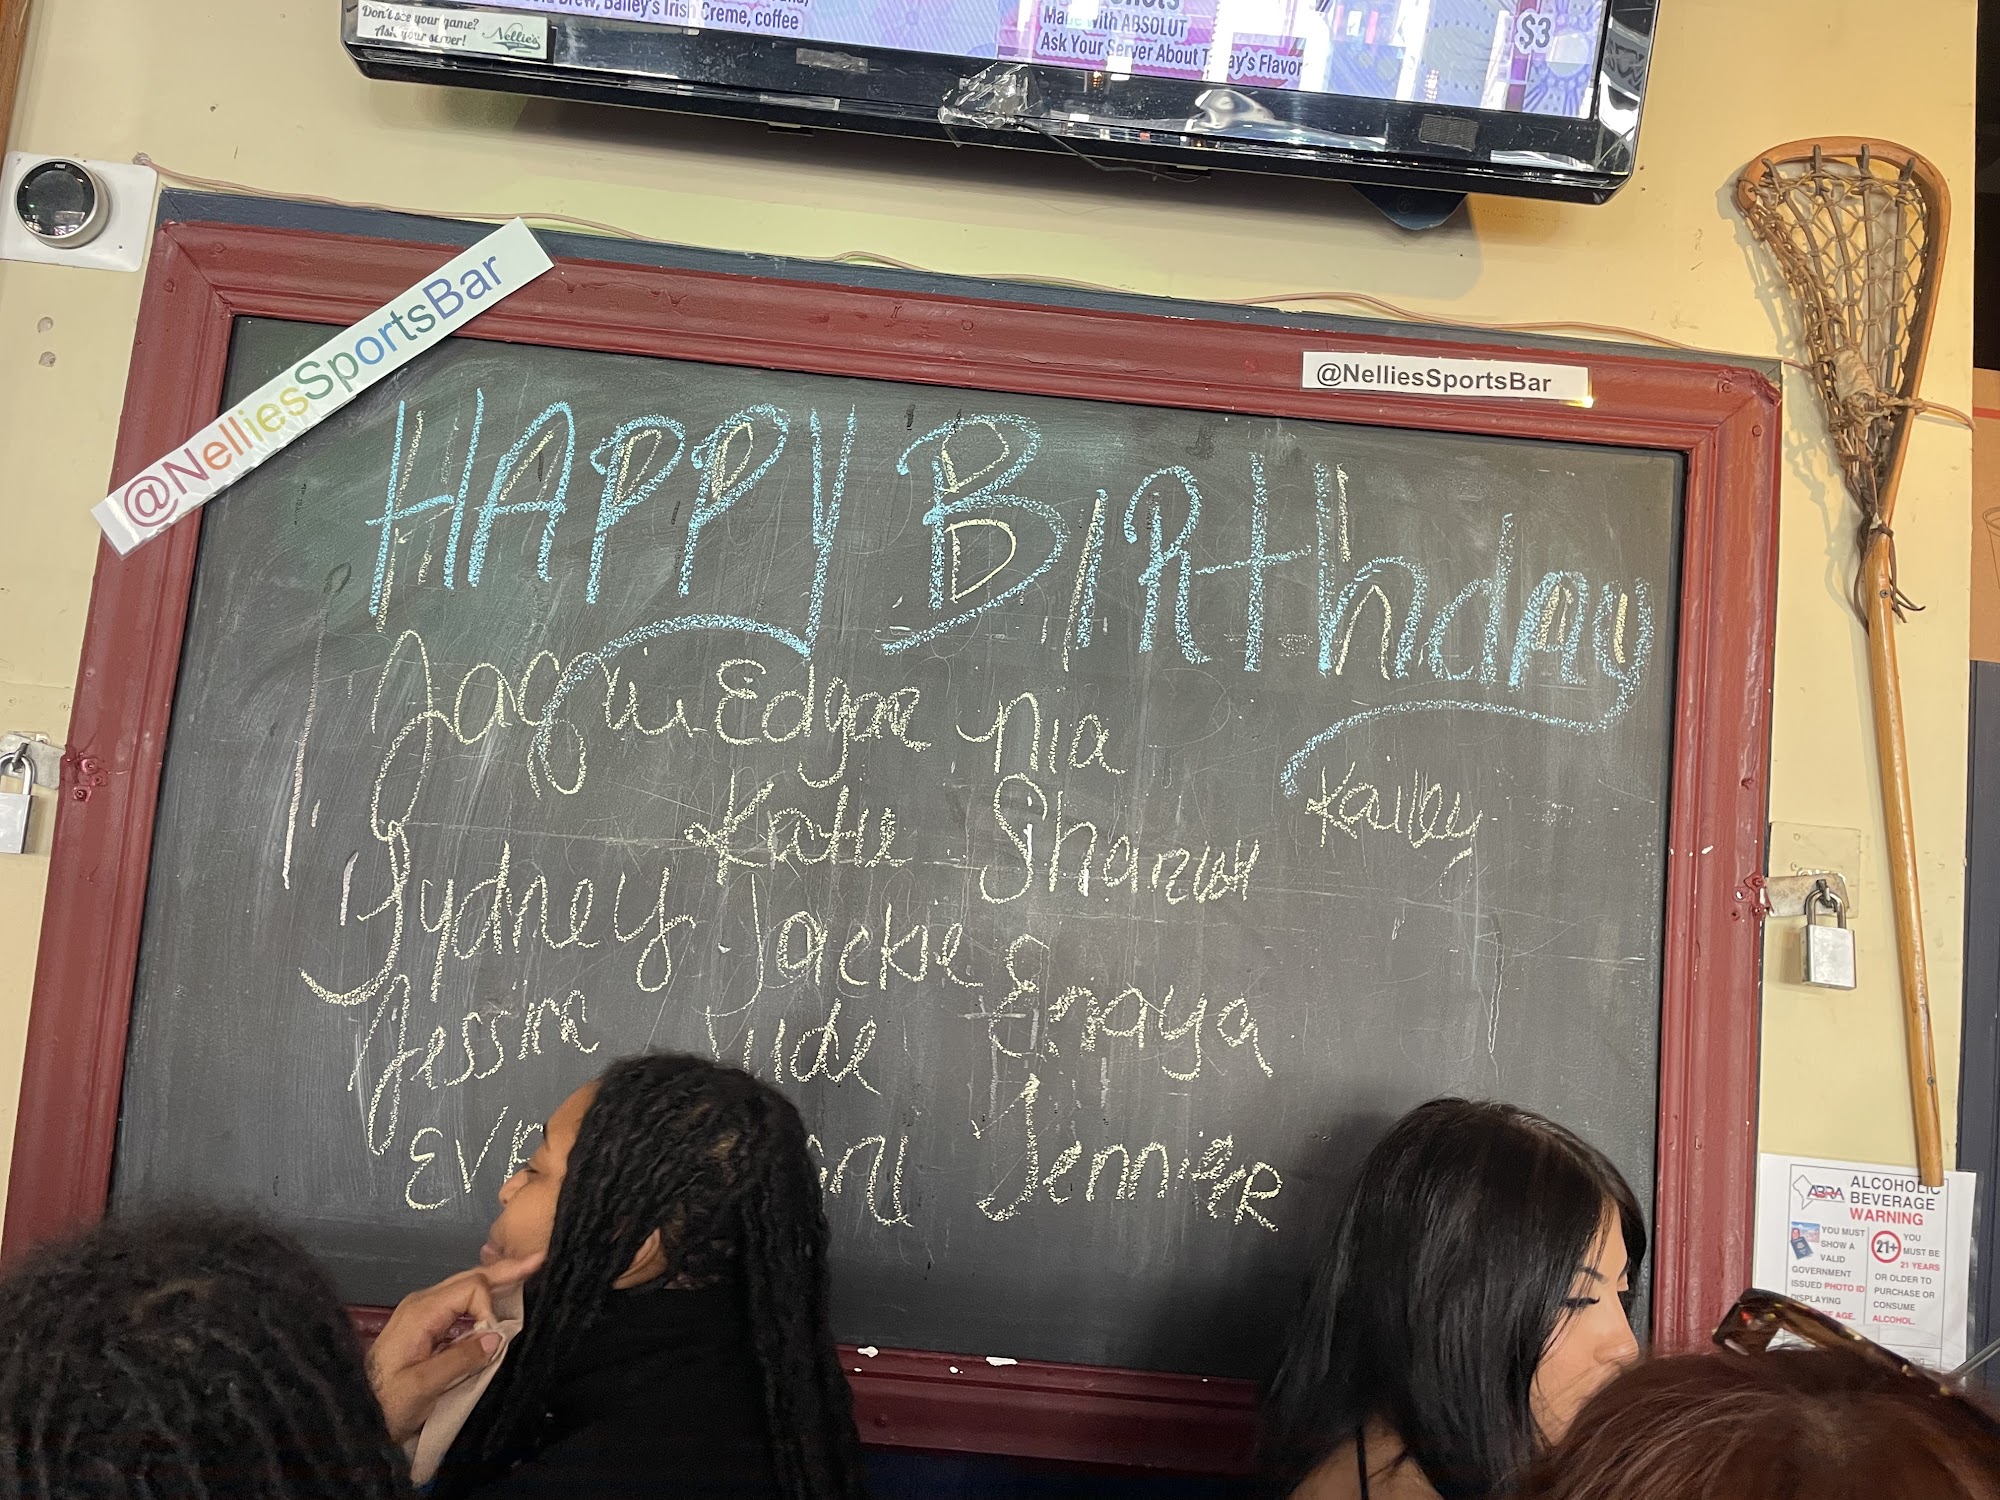 Don't see your game?
Ask your server!
Nellie's
Brew, Bailey's Irish Creme, coffee
Made with ABSOLUT
Ask Your Server About Today's Flavor
$3
nest
@NelliesSportsBar
@NelliesSportsBar
HAPPY BIRthdAy
Jacqui Edyne Nia
Kailey
Katie
Sydney Jackie Enaya
Jessim
Jennifer
ABRA
ALCOHOLIC
BEVERAGE
WARNING
YOU MUST
SHOW A
VALID
GOVERNMENT
ISSUED PHOTO ID
DISPLAYING
AGE.
21+
YOU
MUST BE
21 YEARS
OR OLDER TO
PURCHASE OR
CONSUME
ALCOHOL.